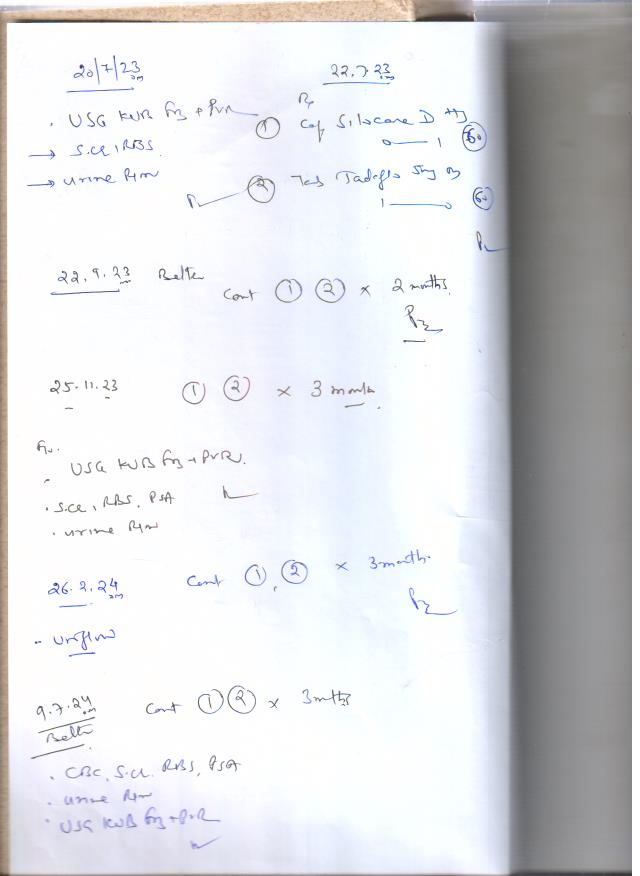 20/7/23
. USG KUB + PVR
→ S.Cr, RBS
→ urine R/m
22.7.23
Rx
① Cap Silocare D
0——1 60
② Tab Tadaflo 5mg
1——0 60
22.9.23 Better
Cont ① ② × 2 months.
25.11.23 ① ② × 3 months.
- USG KUB + PVR.
. S.Cr, RBS, PSA
. urine R/m
26.2.24 Cont ①, ② × 3 month.
- Uroflow
9.7.24 Cont ① ② × 3 mths
Better
. CBC, S.Cr, RBS, PSA
. urine R/m
. USG KUB + PVR